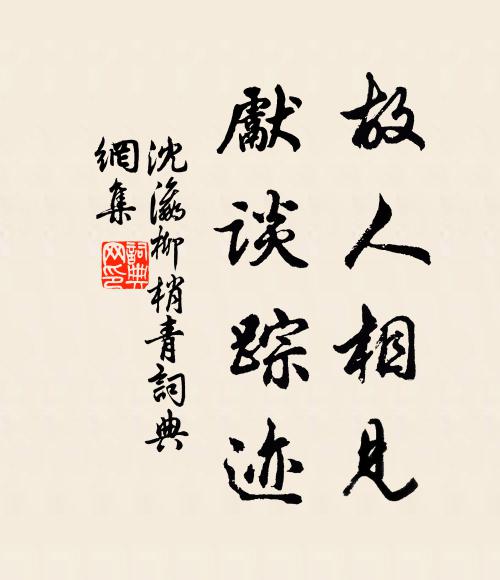 故人相見
獻谈踪迹
沈瀛柳梢青詞典
網集
詞典
网印